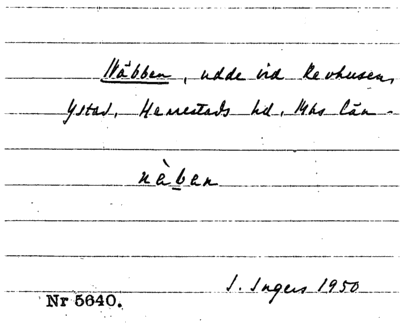 Näbben, udde vid Revhusen,
Ystad, Herrestads hd, Mhs län.
nàban
I. Ingers 1950
Nr 5640.